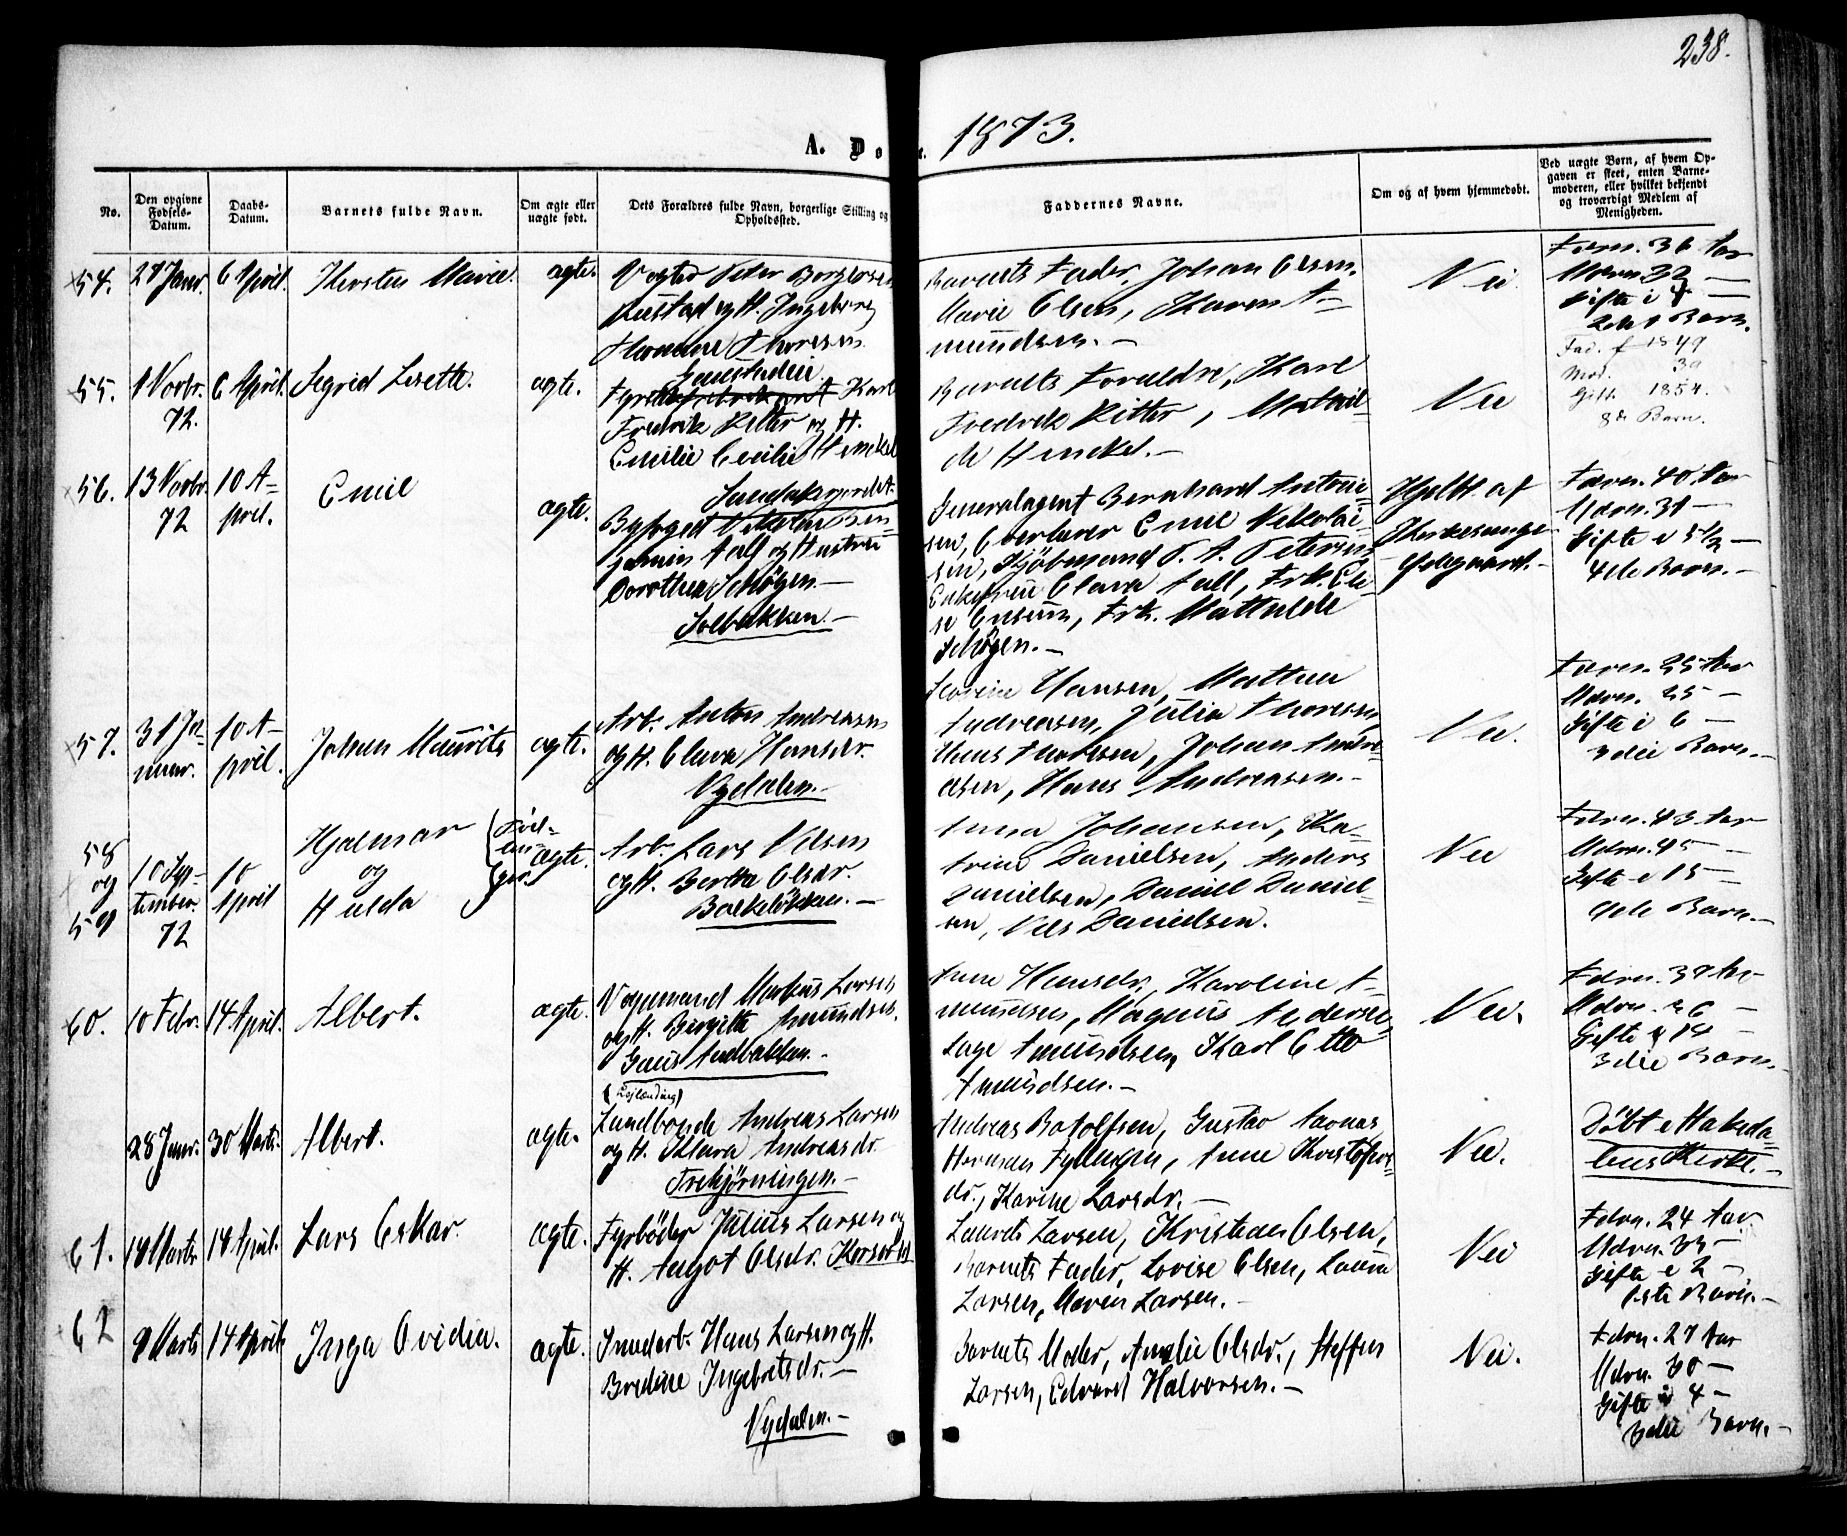 238.
A. Do e. 1873.
No.
Den opgivne Fødsels-Datum.
Daabs-Datum.
Barnets fulde Navn.
Om ægte eller uægte født.
Dets Forældres fulde Navn, borgerlige Stilling og Opholdssted.
Faddernes Navne.
Om og af hvem hjemmedøbt.
Ved uægte Børn, af hvem Opgaven er skeet, enten Barnemoderen, eller hvilket bekjendt og troværdigt Medlem af Menigheden.
54. 27 Janr. 6 April. Kirsten Marie. ægte.
Peter Borgersen
og H. Ingeborg
Thoresen
Barnets Fader, Johan Olsen,
Marie Olsen, Karen A-
mundsen.–
Nei.
Fdrn. 36 Aar
Mdrn. 32 –
Gifte i 7 –
Barn.
55. 1 Novbr. 72. 6 April. Sigrid Lisette. ægte.
Karl
Fredrik Ritter og H.
Emilie Cecilie Henckel
Barnets Forældre, Karl
Fredrik Ritter, Mathil-
de Henckel.–
Nei
Fad. f 1849
Mod. 39
Gift. 1854.
8de Barn.
56. 13 Novbr. 72 10 A-
pril. Emil ægte.
Byfoged Vilhelm Ben-
jamin Aall og Hustru
Dorothea Schøgen.–
Solbakken.–
Generalagent Bernhard Antoni-
sen, Overlærer Emil Nikolai-
sen, Kjøbmand P. A. Petersen
Enkefrue Clara Aall, Frk. Eli-
se , Frk. Mathilde
Schøgen.–
Hjdbt. af
Kirkesanger
Ødegaard.–
Fdrn. 40 Aar
Mdrn. 31 –
Gifte i 5½ –
4de Barn.–
57. 31 Ja-
nuar. 10 A-
pril. Johan Mauritz ægte.
Arb. Anton Andreasen
og H. Clara Hansdr.
Nydalen.–
Hansen, Mathea
Andreasen, Julia Thoresen,
Hans Thoresen, Johan Andre-
asen, Hans Andreasen.–
Nei.
Fdrn. 25 Aar
Mdrn. 25 –
Gifte i 6 –
3die Barn.–
58
og
59 10 Sep-
tember.
72 10
April Hjalmar
og
Hulda
Tvil-
lin-
ger. ægte.
Arb. Lars Nilsen
og H. Bertha Olsdr.
Bakkeløkken.–
Anna Johansen, Ka-
trine Danielsen, Anders
Danielsen, Daniel Daniel-
sen, Nils Danielsen.
Nei
Fdrn. 43 Aar
Mdrn. 45 –
Gifte i 15 –
9de Barn.–
60. 10 Febr. 14 April. Albert. ægte.
Vognmand Markus Larsen
og H. Birgitte Amundsen.
Anne Hansdr., Karoline A-
mundsen, Magnus Andersen
Amundsen, Karl Otto
Amundsen.–
Nei.
Fdrn. 39 Aar
Mdrn. 36 –
Gifte i 14 –
3die Barn.
28 Janr. 30 Marts. Albert. ægte.
(Løjlending)
Landbonde Andreas Larsen
og H. Klara Andreasdr.
Andreas Botolfsen, Gustav Aarnæs
Herman , Anne Kristofers-
dr., Karine Larsdr.–
Nei.
Døbt i Hakeda-
lens Kirke.–
61. 18 Marts 14 April. Lars Oskar. ægte.
Fyrbøder Julius Larsen og
H. Olsdr. Korsvold
Laurits Larsen, Kristian Olsen,
Barnets Fader, Lovise Olsen, Laura
Larsen, Maren Larsen.–
Nei
Fdrn. 24 Aar.
Mdrn. 33 –
Gifte i 2 –
1ste Barn.–
62 9 Marts 14 April. Inga Ovidia. ægte.
Hans Larsen og H.
Bredine Ingebretsdr.–
Nydalen.–
Barnets Moder, Amalie Olsdr., Steffen
Larsen, Edvard Halvorsen.–
Nei.
Fdrn. 27 Aar
Mdrn. 30 –
Gifte i 4 –
3die Barn.–